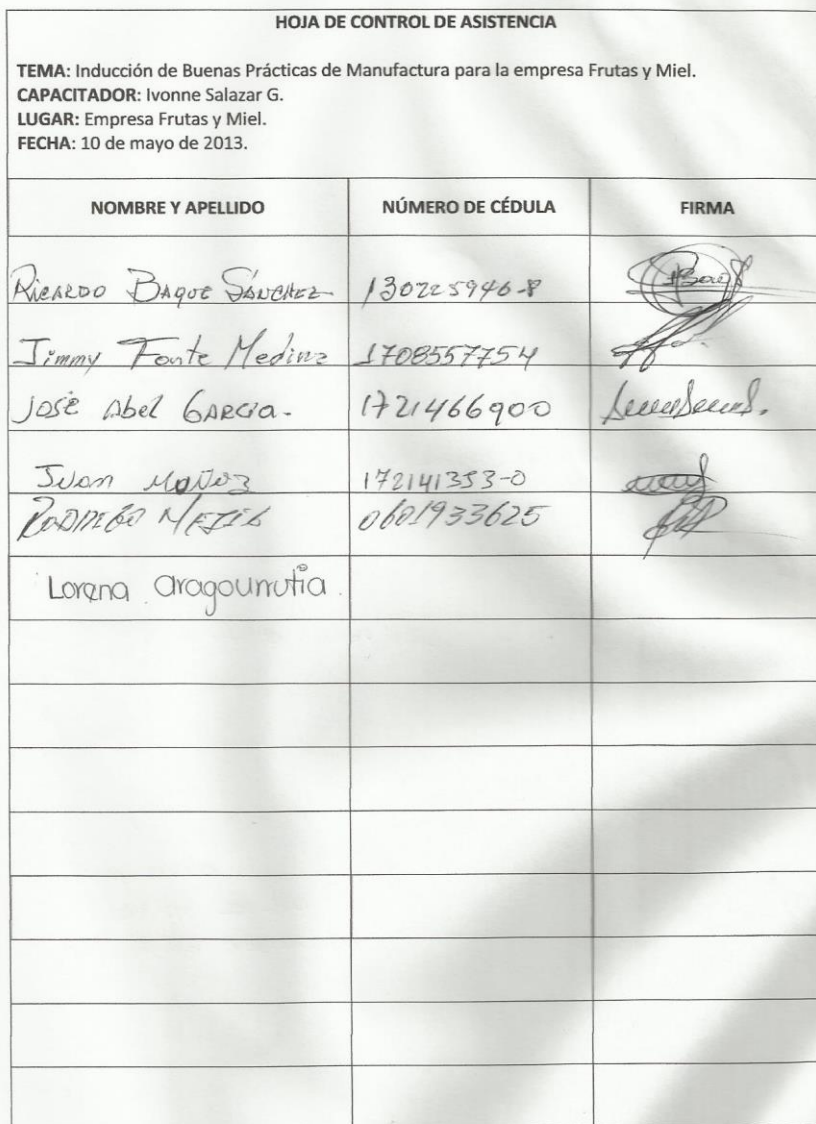 HOJA DE CONTROL DE ASISTENCIA
TEMA: Inducción de Buenas Prácticas de Manufactura para la empresa Frutas y Miel.
CAPACITADOR: Ivonne Salazar G.
LUGAR: Empresa Frutas y Miel.
FECHA: 10 de mayo de 2013.
NOMBRE Y APELLIDO NÚMERO DE CÉDULA FIRMA
RICARDO BAQUE SÁNCHEZ 130225946-8
Jimmy Fonte Medina 1708557754
JOSÉ Abel GARCIA. 1721466900
IVAN MUÑOZ 172141353-0
RODRIGO MEJIA 0601933625
Lorena aragourrutia.